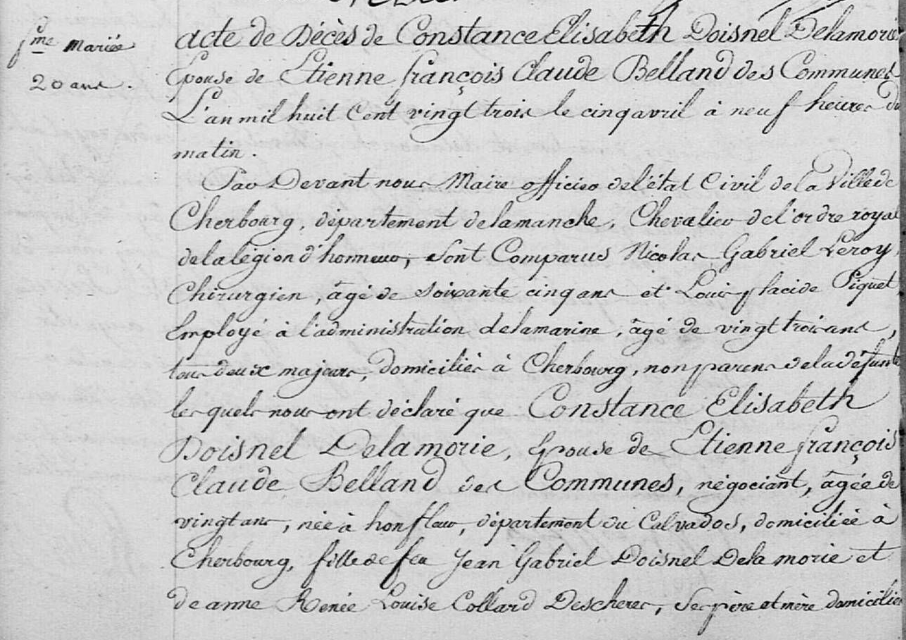 fme Mariée
20 ans.
acte de Décès de Constance Elisabeth Doisnel Delamorie
Epouse de Etienne françois Claude Belland des Communes
L'an mil huit Cent vingt trois le cinq avril à neuf heures du
matin.
Par Devant nous Maire officier de l'état Civil de la Ville de
Cherbourg, département de lamanche, Chevalier de l'ordre royal
de la légion d'honneur, sont Comparus Nicolas Gabriel Leroy,
Chirurgien, âgé de soixante cinq ans et Louis placide Piquet
Employé à l'administration de lamarine, âgé de vingt trois ans,
tous deux majeurs, domiciliés à Cherbourg, non parens de la défunte
lesquels nous ont déclaré que Constance Elisabeth
Doisnel Delamorie, Epouse de Etienne françois
Claude Belland des Communes, négociant, âgée de
vingt ans, née à honfleur, département du Calvados, domiciliée à
Cherbourg, fille de feu Jean Gabriel Doisnel Delamorie et
de anne Renée Louise Collard Descheres, Ses père et mère domiciliés